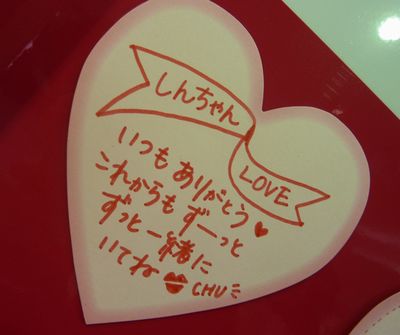 しんちゃん
LOVE
いつもありがとう♥
これからもずーっと
ずっと一緒に
いてね♥CHU